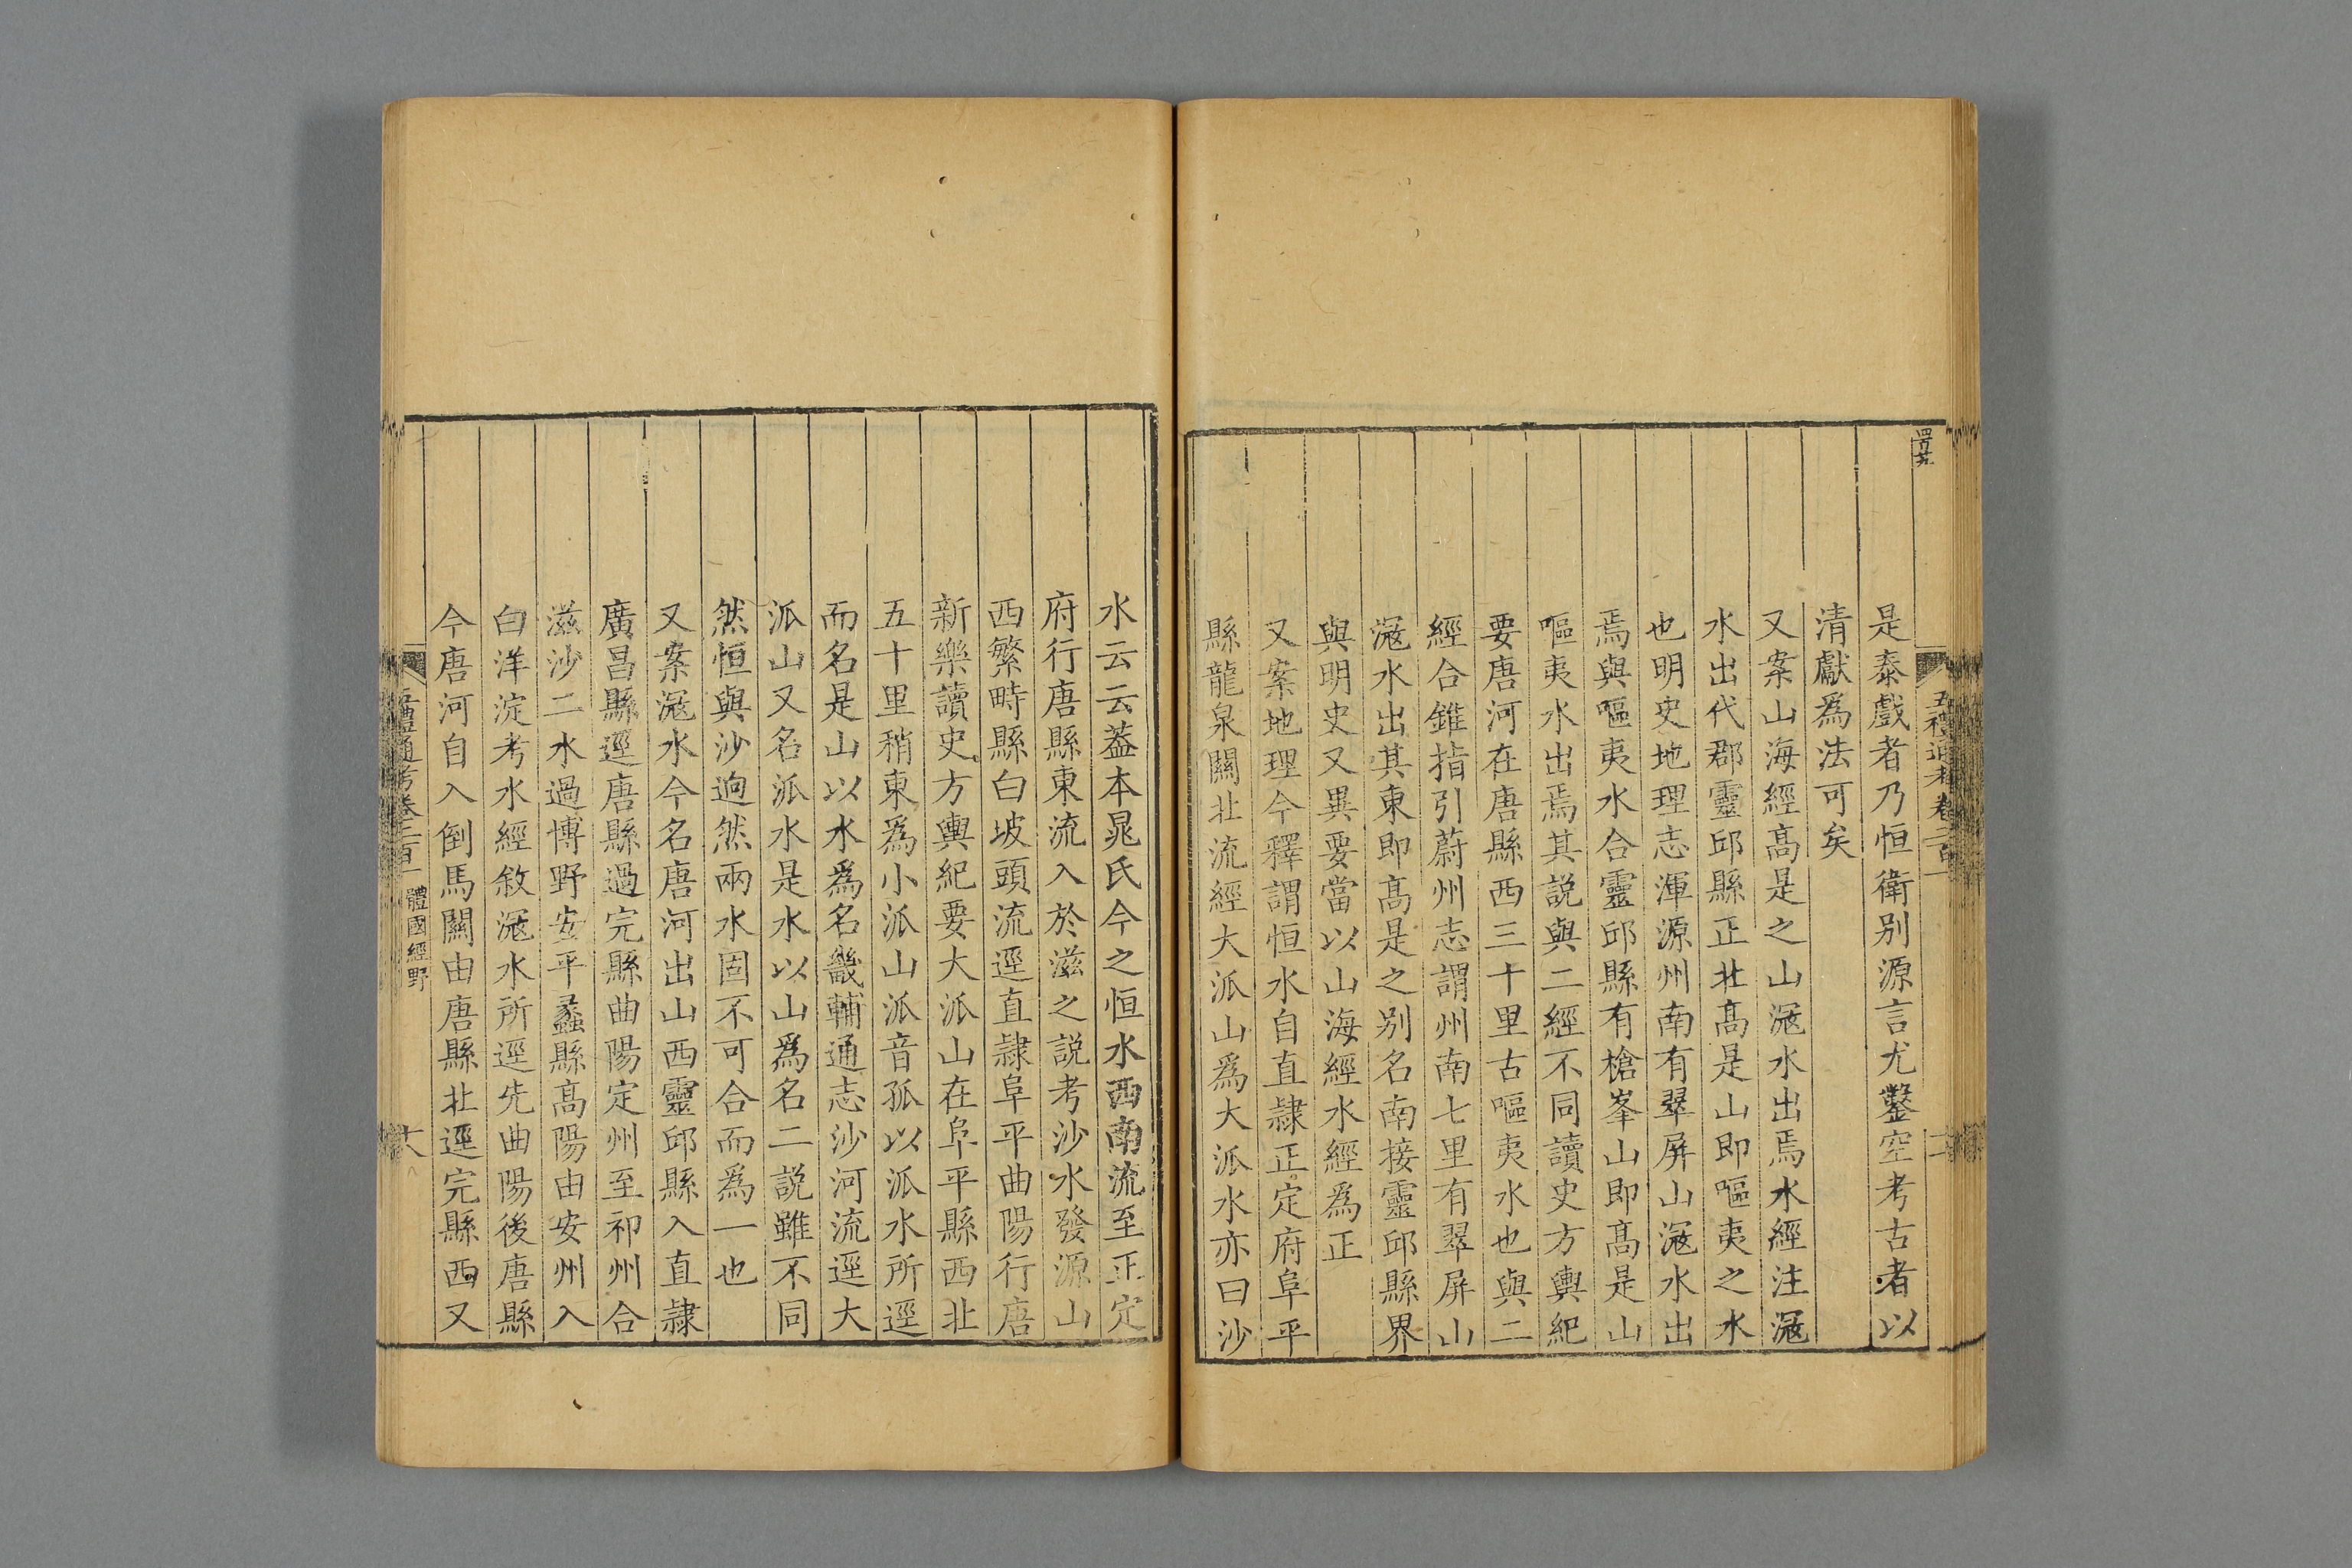 是泰戲者乃恒衛别源言尤鑿空考古者以
清獻爲法可矣
又案山海經高是之山滱水出焉水經注滱
水出代郡靈邱縣正北高是山即嘔夷之水
也明史地理志渾源州南有翠屏山滱水出
焉與嘔夷水合靈邱縣有槍峯山即高是山
嘔夷水出焉其説與二經不同讀史方輿紀
要唐河在唐縣西三十里古嘔夷水也與二
經合錐指引蔚州志謂州南七里有翠屏山
滱水出其東即高是之别名南接靈邱縣界
與明史又異要當以山海經水經爲正
又案地理今釋謂恒水自直隷正定府阜平
縣龍泉關北流經大派山爲大派水亦曰沙
水云云葢本晁氏今之恒水西南流至正定
府行唐縣東流入於滋之説考沙水發源山
西繁畤縣白坡頭流逕直隷阜平曲陽行唐
新樂讀史方輿紀要大派山在阜平縣西北
五十里稍東爲小派山派音孤以派水所逕
而名是山以水爲名畿輔通志沙河流逕大
派山又名派水是水以山爲名二説雖不同
然恒與沙逈然兩水固不可合而爲一也
又案滱水今名唐河出山西靈邱縣入直隷
廣昌縣逕唐縣過完縣曲陽定州至祁州合
滋沙二水過博野安平蠡縣高陽由安州入
白洋淀考水經敘滱水所逕先曲陽後唐縣
今唐河自入倒馬關由唐縣北逕完縣西又
五禮通考卷二百一 體國經野